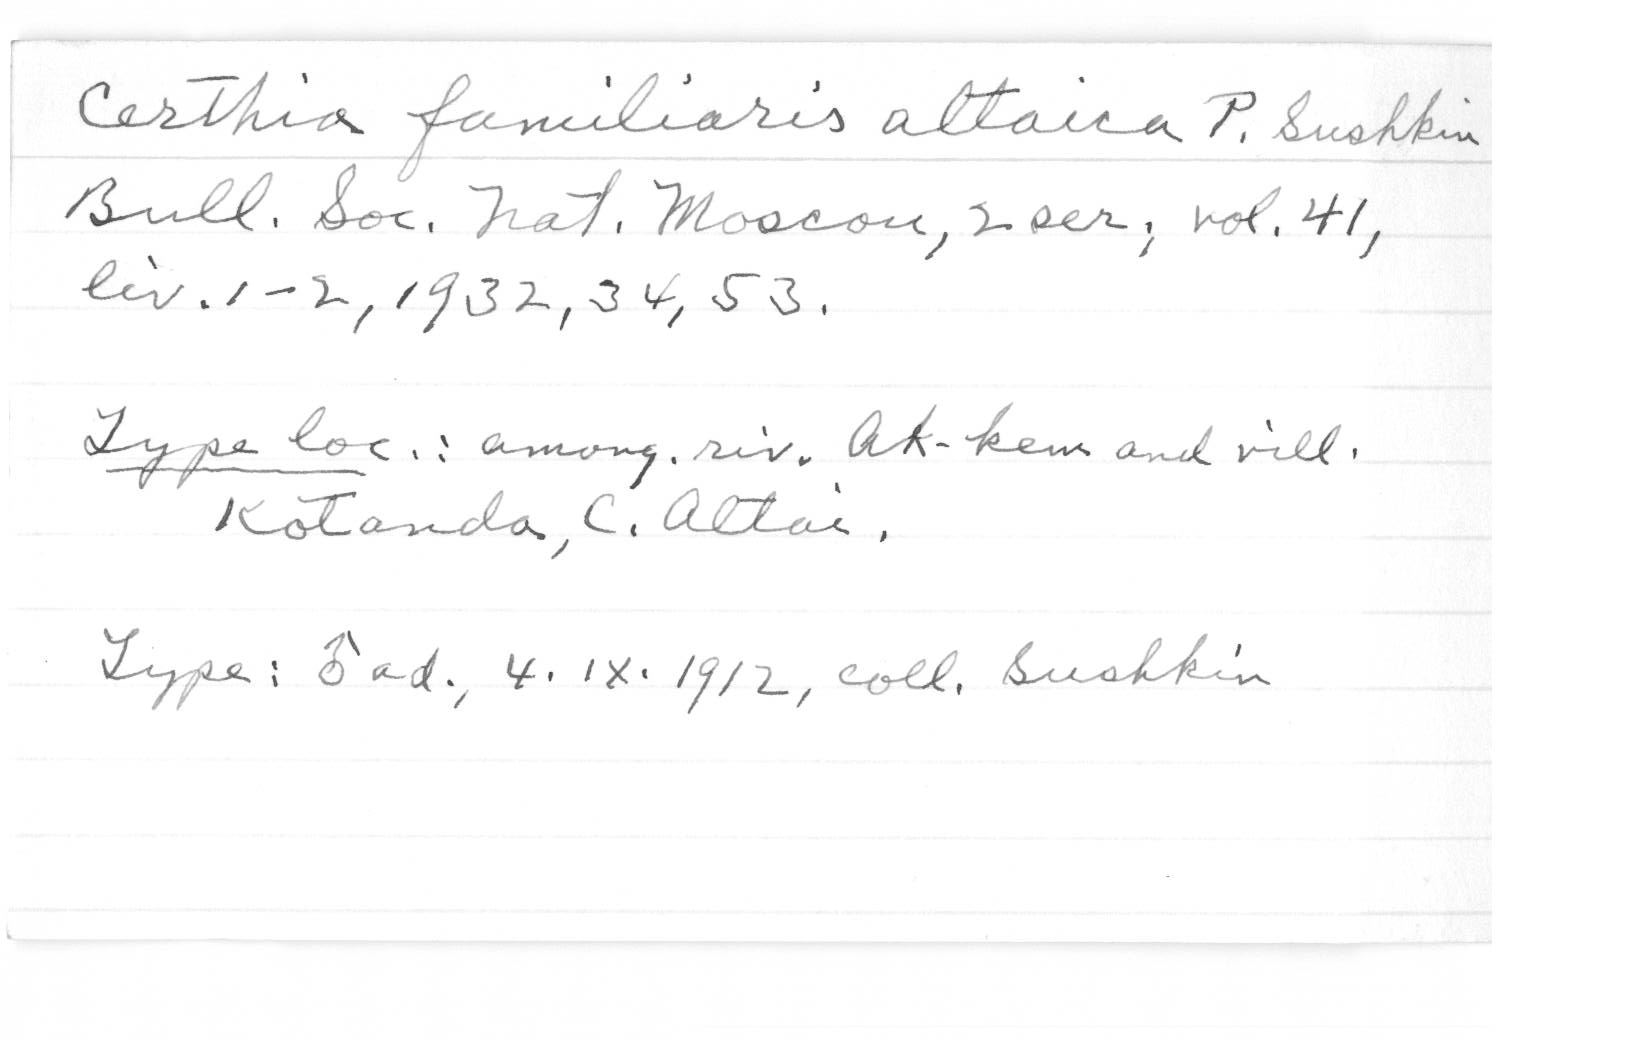 Certhia familiaris altaica P. Sushkin
Bull. Soc. Nat. Moscou, 2 ser, vol. 41,
liv. 1-2, 1932, 34, 53.
Type loc.: among. riv. Ak-kem and vill.
Kotanda, C. Altai.
Type: ♂ ad., 4. IX. 1912, coll. Sushkin